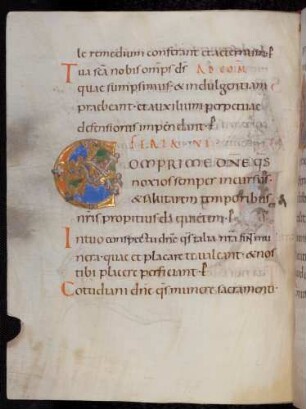 le remedium conferant et aeternum. P
Tua sca nobis omps ds AD COM
quae sumpsimus. & indulgentiam
praebeant. et auxilium perpetuae
defensionis impendant. P
FERIA VI
COMPRIME DNE QS
noxios semper incursus.
& salutarem temporibus
nris propitius da quietem. P
In tuo conspectu dne qs talia nra sint mu
nera. quae et placare te valeant. & nos
tibi placere perficiant. P
Cotidiani dne qs munere sacramenti.